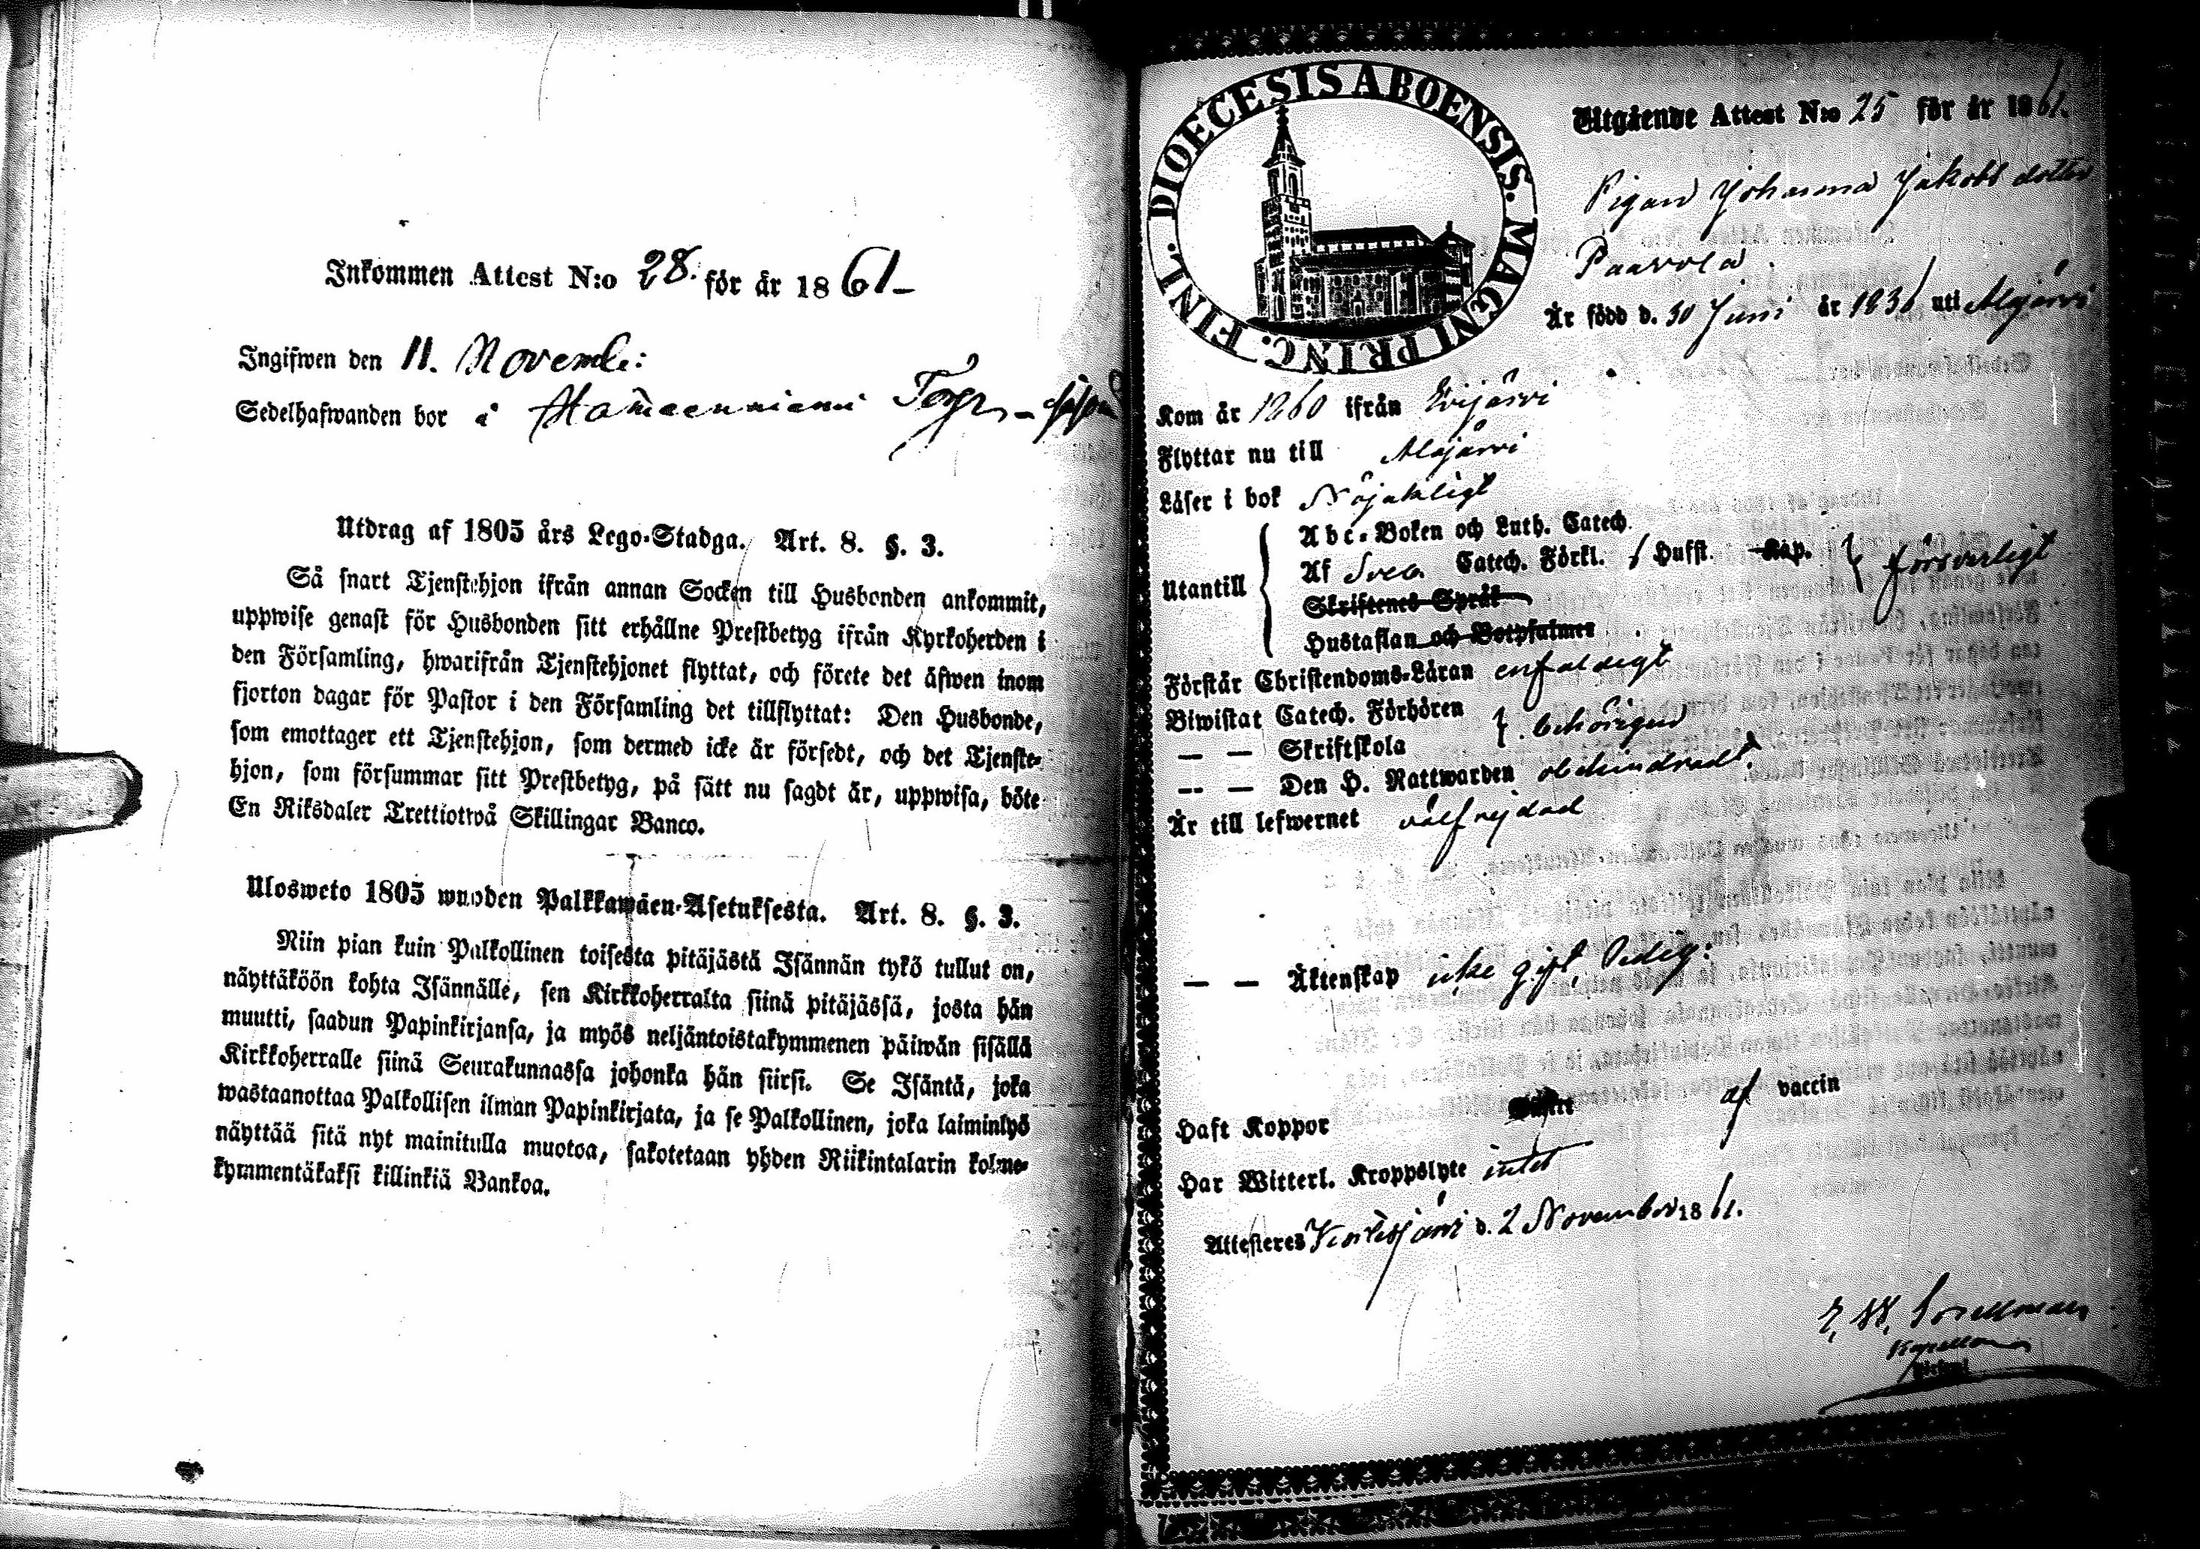 Inkommen Attest N:o 28. för år 1861
Ingifwen den 11. Novembr:
Sedelhafwanden bor i Torp
Utdrag af 1805 års Lego-Stadga. Art. 8. §. 3.
Så snart Tjenstehjon ifrån annan Socken till Husbonden ankommit,
uppwise genast för Husbonden sitt erhållne Prestbetyg ifrån Kyrkoherden i
den Församling, hwarifrån Tjenstehjonet flyttat, och förete det äfwen inom
fjorton dagar för Pastor i den Församling det tillflyttat: Den Husbonde,
som emottager ett Tjenstehjon, som dermed icke är försedt, och det Tjenste-
hjon, som försummar sitt Prestbetyg, på sätt nu sagdt är, uppwisa, böte
En Riksdaler Trettiotwå Skillingar Banco.
Ulosweto 1805 wuoden Palkkawäen-Asetuksesta. Art. 8. §. 3.
Niin pian kuin Palkollinen toisesta pitäjästä Isännän tykö tullut on,
näyttäköön kohta Isännälle, sen Kirkkoherralta siinä pitäjässä, josta hän
muutti, saadun Papinkirjansa, ja myös neljäntoistakymmenen päiwän sisällä
Kirkkoherralle siinä Seurakunnassa johonka hän siirsi. Se Isäntä, joka
wastaanottaa Palkollisen ilman Papinkirjata, ja se Palkollinen, joka laiminlyö
näyttää sitä nyt mainitulla muotoa, sakotetaan yhden Riikintalarin kolme-
kymmentäkaksi killinkiä Bankoa.
DIOECESIS ABOENSIS. MAGNI PRINC. FINL.
Utgående Attest N:o 25 för år 1861.
Pigan Johanna Jakobsdotter
Paavola
Är född d. 30 Juni år 1836 uti Alajärvi
Kom år 1860 ifrån Evijärvi
Flyttar nu till Alajärvi
Läser i bok Nöjaktligt
Utantill
Abc-Boken och Luth. Catech.
Af Sveb. Catech. Förkl. Hufst. Kap. försvarligt
Skriftenes Språk
Hustaflan och Botpsalmer
Förstår Christendoms-Läran enfaldigt
Biwistat Catech. Förhören
— — Skriftskola behörigen
— — Den H. Nattwarden obehindradt.
Är till lefwernet välfrejdad
— — Äktenskap icke gift, ledig:
Haft Koppor af vaccin
Har Witterl. Kroppslyte intet
Attesteres d. 2 November 1861.
Kapellan